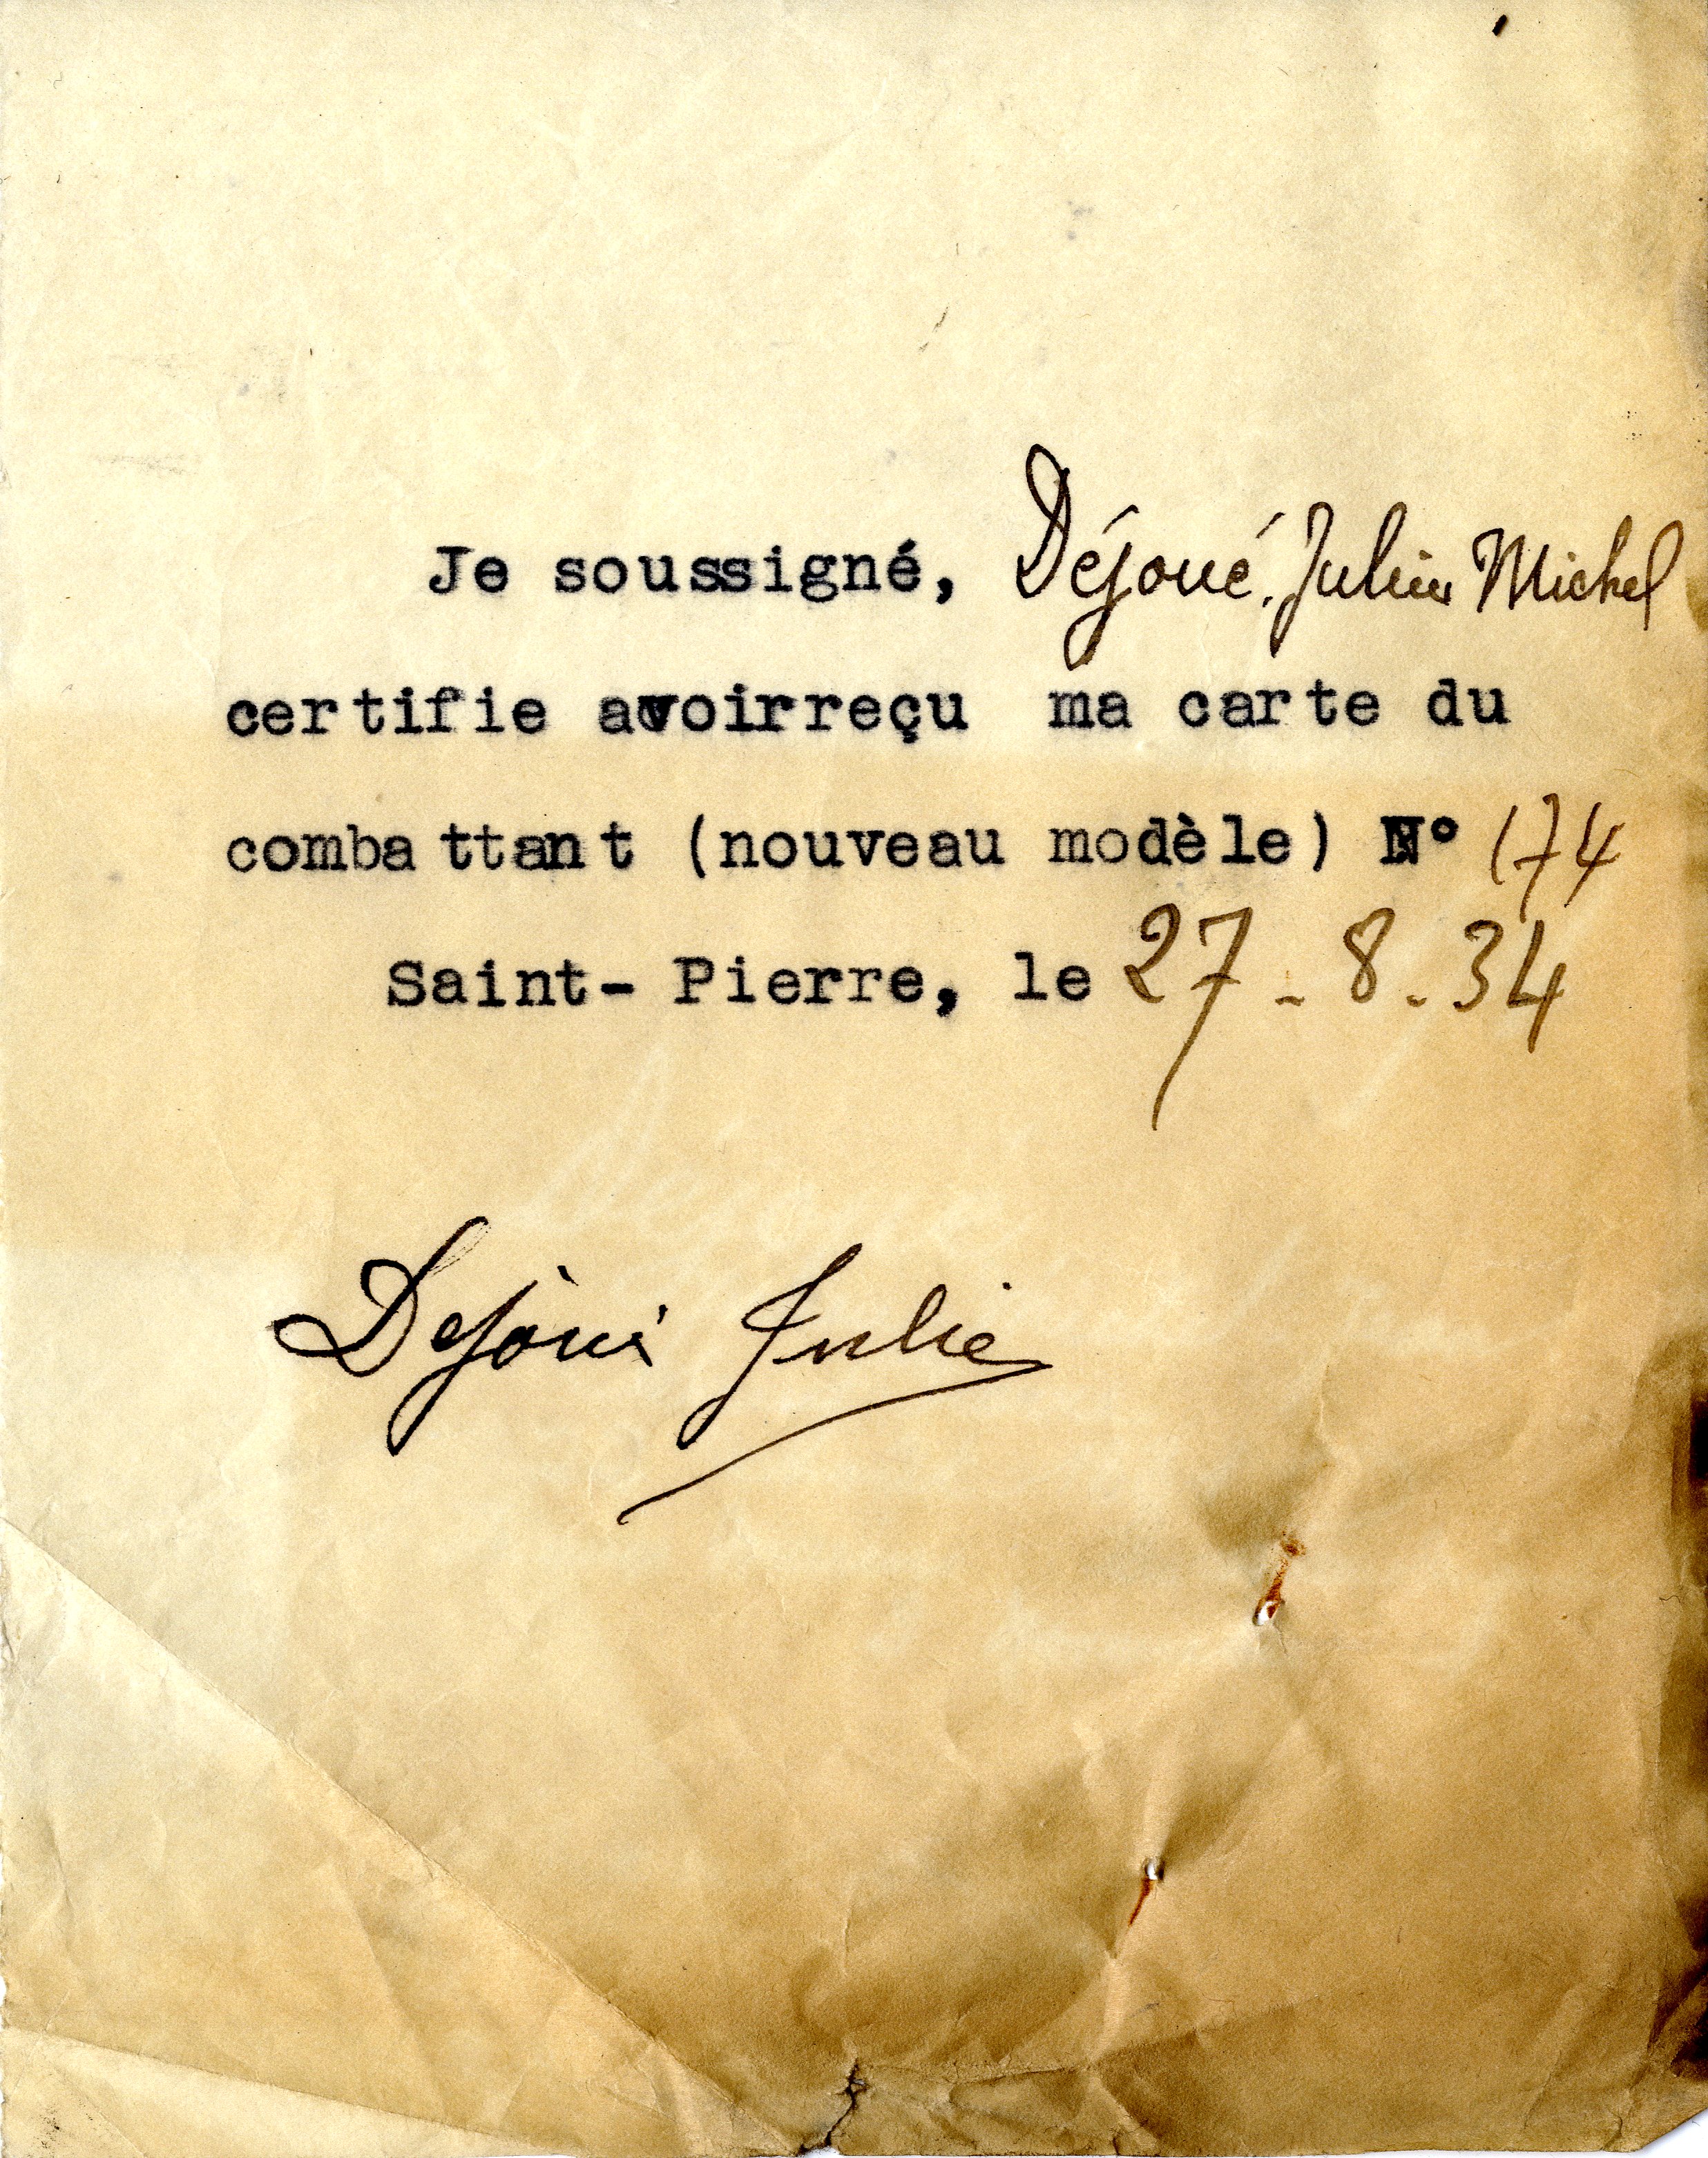 Je soussigné, Déjoué. Julien Michel
certifie avoirreçu ma carte du
combattant (nouveau modèle) N° 174
Saint-Pierre, le 27-8-34
Dejoué Julien